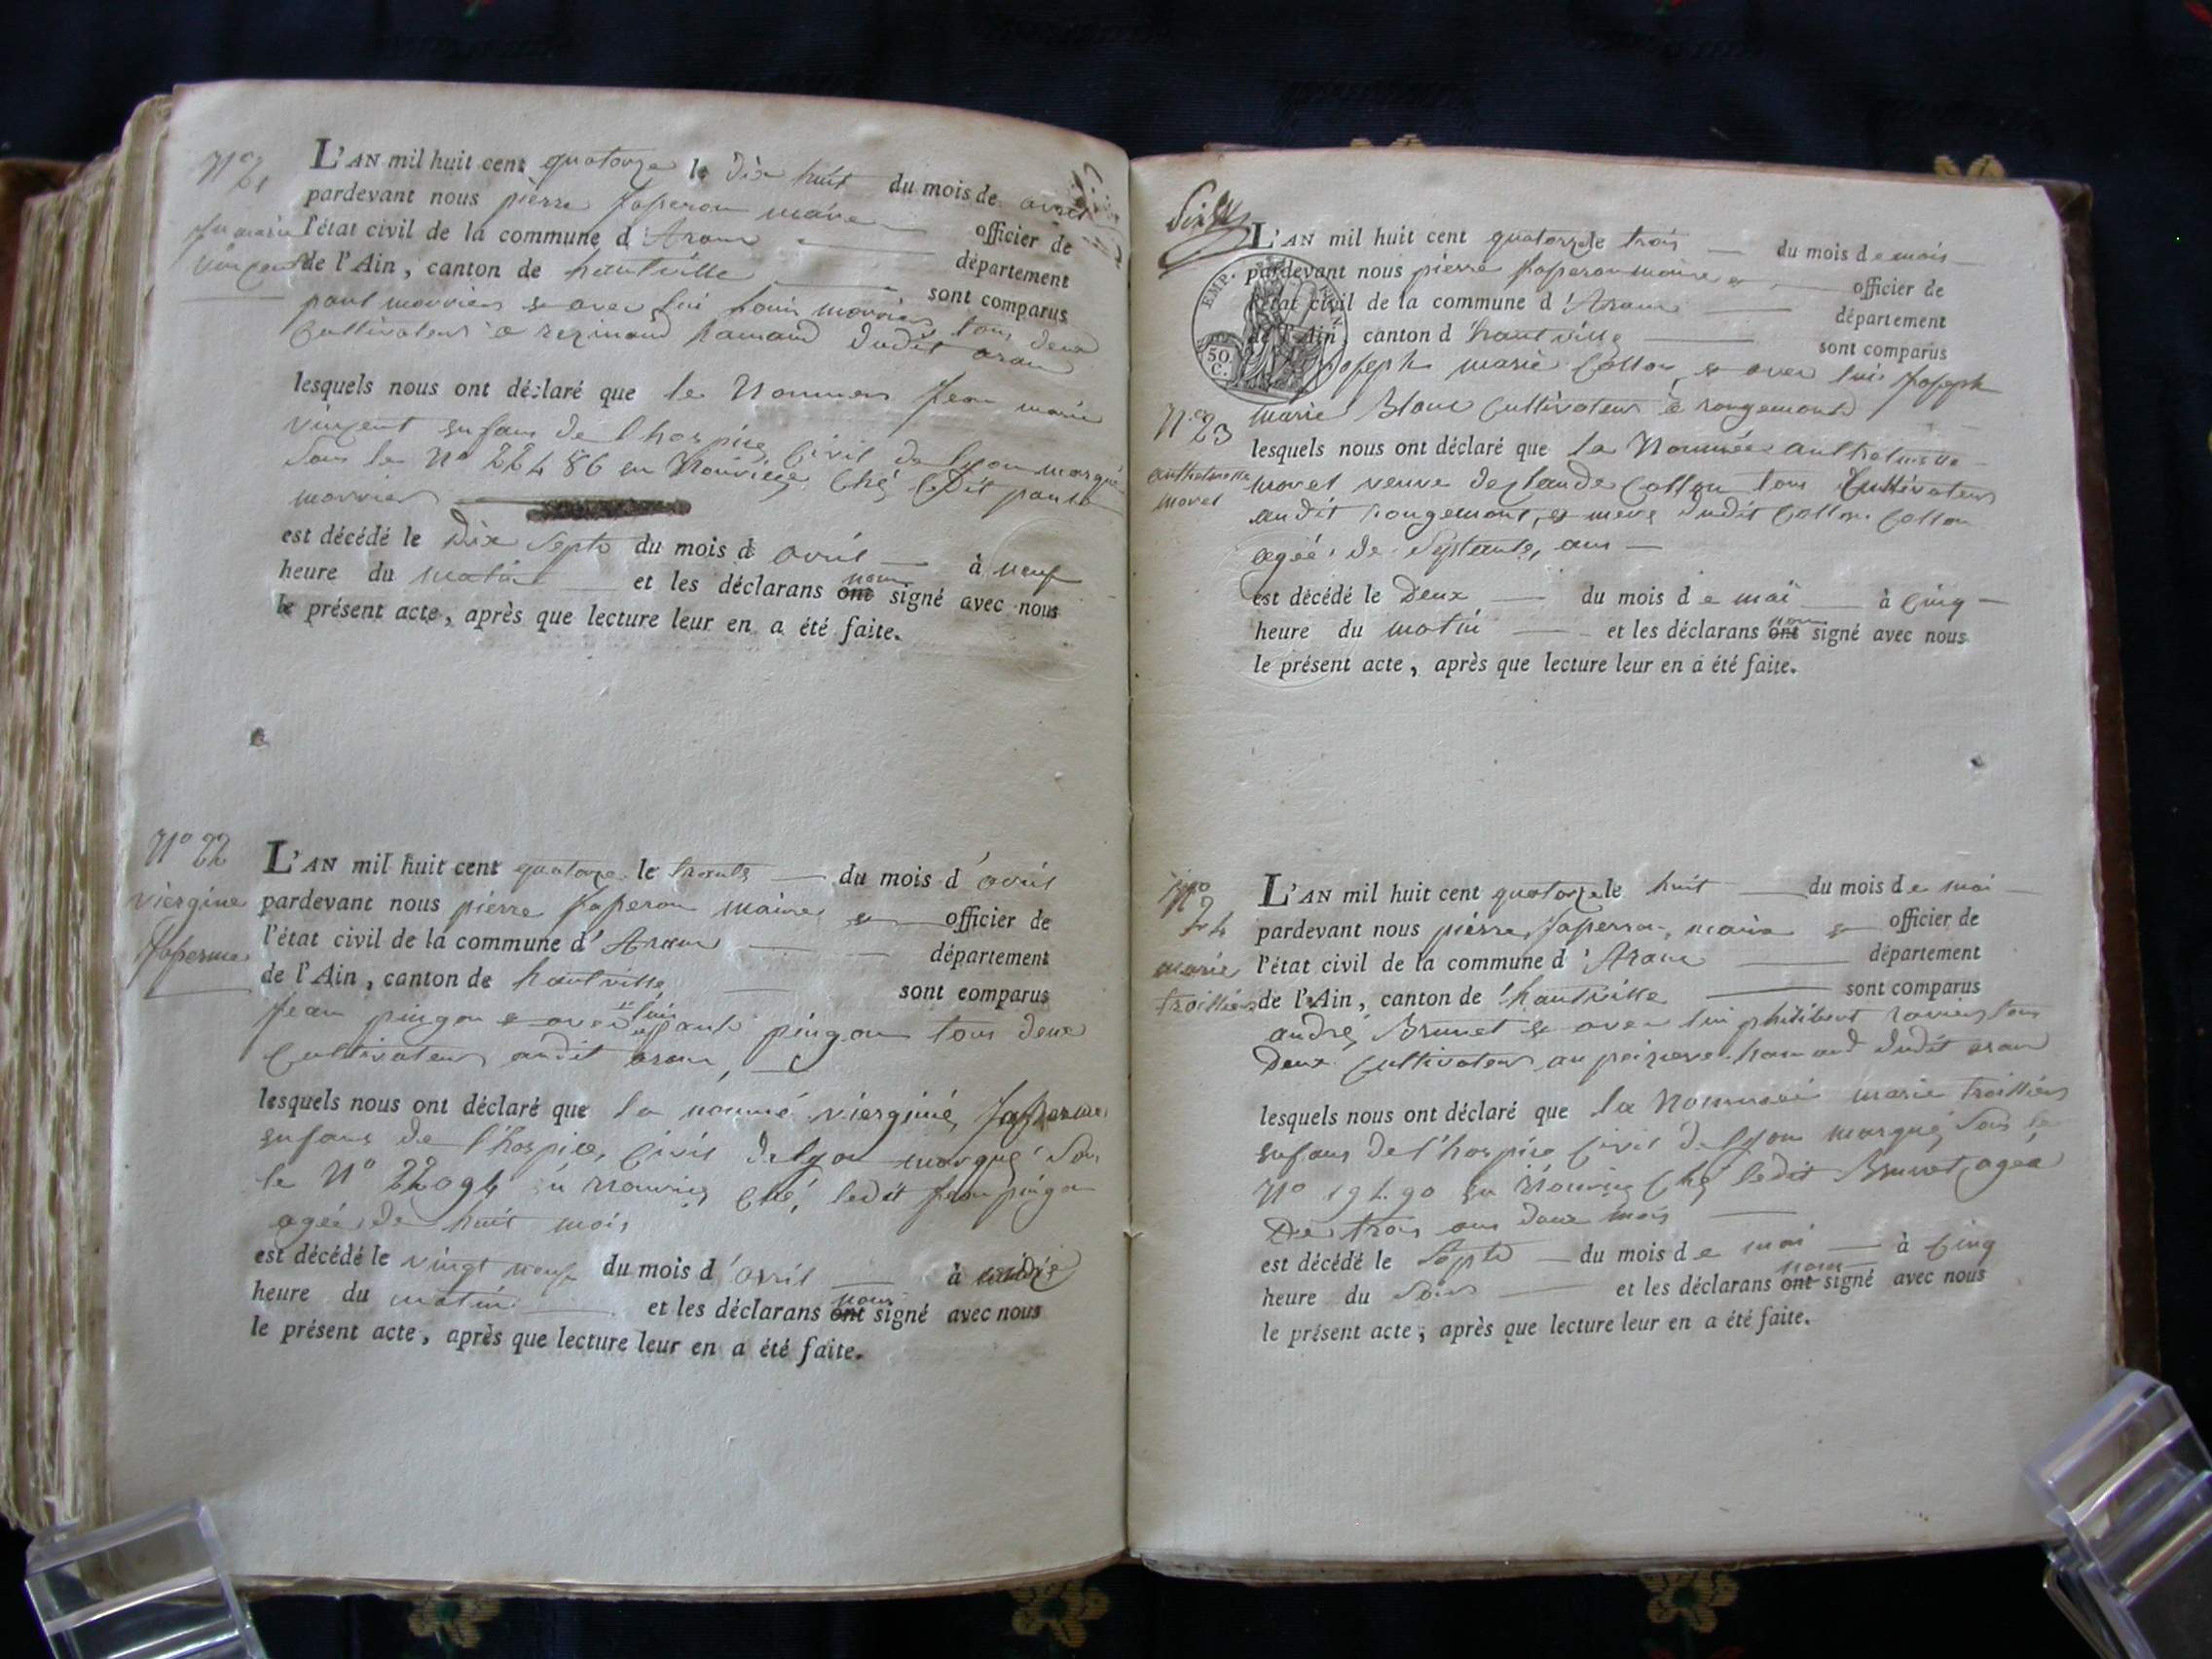 N° 21
L'AN mil huit cent quatorze le dix huit du mois de avril
pardevant nous pierre maire officier de
l'état civil de la commune d'Aran département
de l'Ain, canton de hautville sont comparus
vincent
paul morrier et avec lui louis morrier tous deux
cultivateurs a dudit aran
lesquels nous ont déclaré que le nommer jean marie
vincent enfans de l'hospice civil de lyon marqué
sous le N° 22486 en nourice ché ledit paul
morrier
est décédé le dix sept du mois d avril à neuf
heure du matin et les déclarans ont non signé avec nous
le présent acte, après que lecture leur en a été faite.
N° 22
viergine
L'AN mil huit cent quatorze le trante du mois d'avril
pardevant nous pierre maire et officier de
l'état civil de la commune d'Aran département
de l'Ain, canton de hautville sont comparus
jean pingon et avec lui paul pingon tous deux
cultivateurs audit aran
lesquels nous ont déclaré que la nommé vierginié
enfans de l'hospice civil de lyon marqué sou
le N° 22094 en nourice ché ledit jean pingon
agée de huit mois
est décédé le vingt neuf du mois d'avril à
heure du matin et les déclarans ont non signé avec nous
le présent acte, après que lecture leur en a été faite.
EMP.
50. C.
L'AN mil huit cent quatorze le trois du mois de mois
pardevant nous pierre maire et officier de
l'état civil de la commune d'Aran département
de l'Ain, canton d hautville sont comparus
joseph marie Collon et avec lui joseph
N° 23
marie Blanc cultivateur a rougemond
lesquels nous ont déclaré que la nommée anthelmette
anthelmette
morel
morel veuve de claude Collon tous cultivateur
audit rougemont, et mere dudit Collon Collon
agée de septante ans
est décédé le deux du mois de mai à cinq
heure du matin et les déclarans ont non signé avec nous
le présent acte, après que lecture leur en a été faite.
N° 24
L'AN mil huit cent quatorze le huit du mois de mai
pardevant nous pierre maire et officier de
marie
l'état civil de la commune d'Aran département
troillier
de l'Ain, canton de hautville sont comparus
andré Brunet et avec lui philibert ravier tous
deux cultivateur au hamaud dudit aran
lesquels nous ont déclaré que la nommée marie troillier
enfans de l'hospice civil de lyon marqué sous le
N° 19490 en nourice ché ledit Brunet agéa
de trois ans deux mois
est décédé le sept du mois de mai à cinq
heure du soir et les déclarans ont non signé avec nous
le présent acte, après que lecture leur en a été faite.